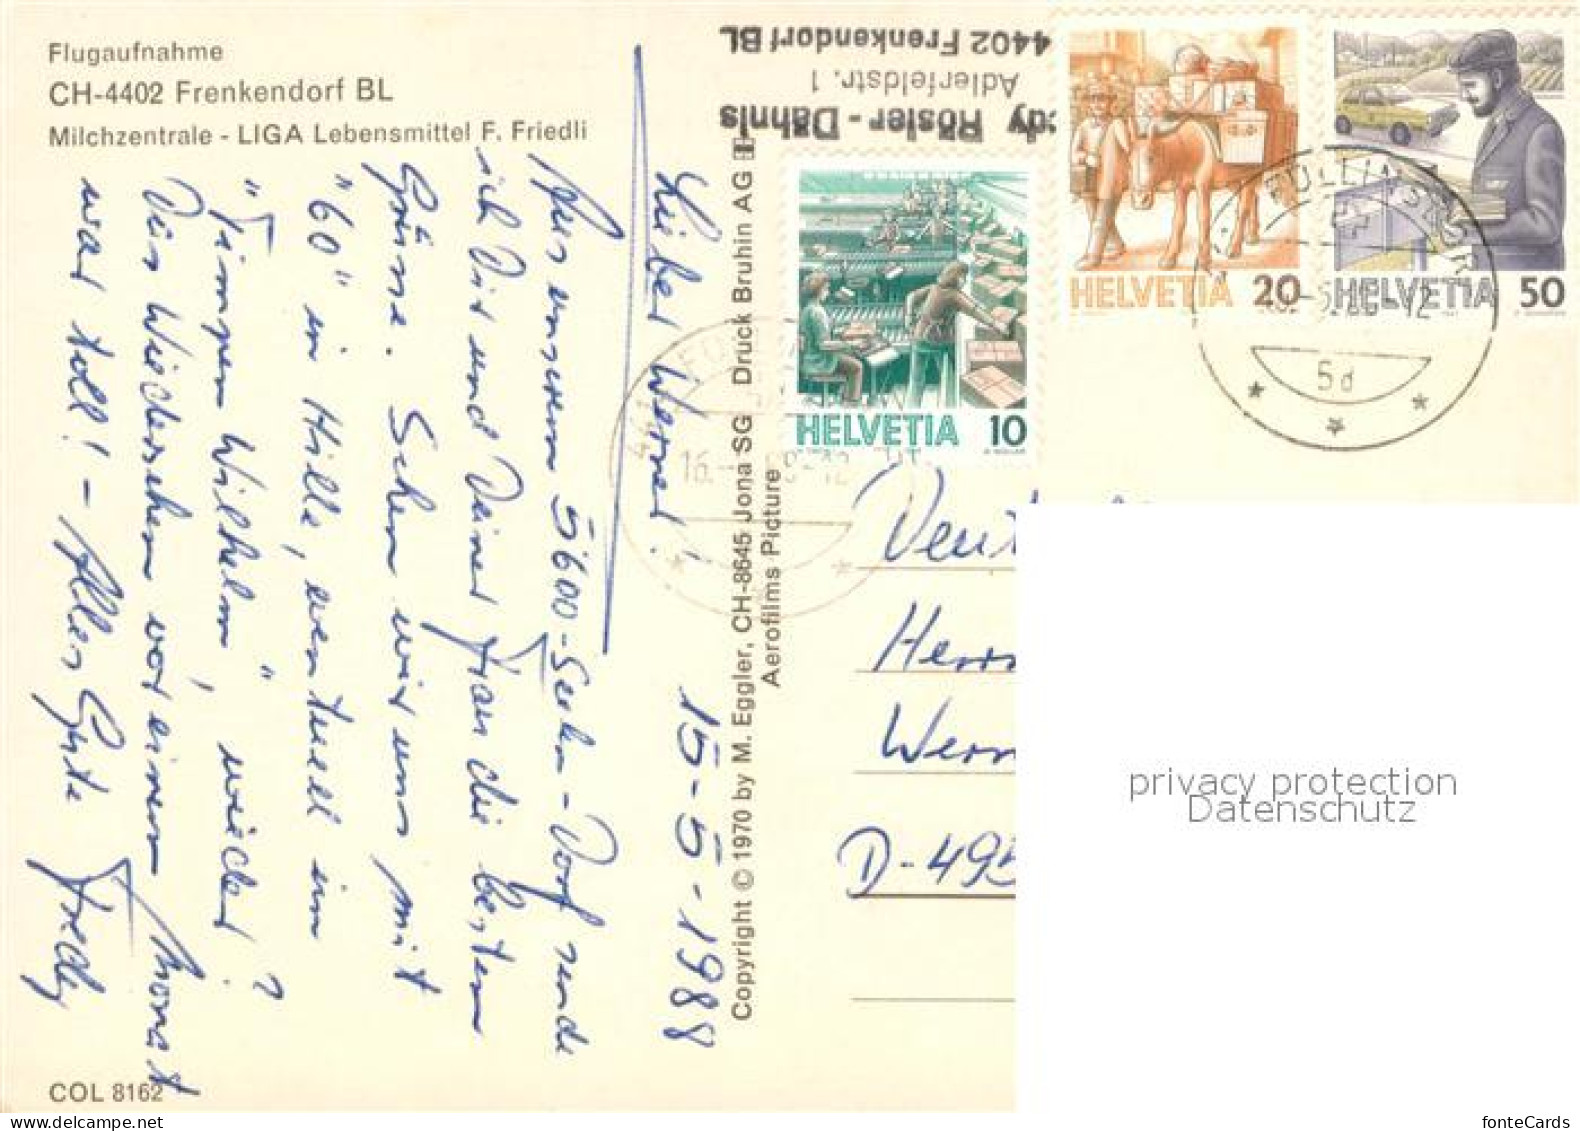 Flugaufnahme
CH-4402 Frenkendorf BL
Milchzentrale - LIGA Lebensmittel F. Friedli
Rösler-Dähnis
Adlerfeldstr. 1
4402 Frenkendorf BL
HELVETIA 10
HELVETIA 20
HELVETIA 50
5d
Lieber Werner!
15-5-1988
Aus unserem 5600-Seelen-Dorf sende
ich Dir und Deiner Frau die besten
Grüsse. Sehen wir uns mit
"60" in Hille, eventuell im
"Timpen Wilhelm", wieder?
Das Wiedersehen vor einem Monat
war toll! - Alles Gute Fredy
Copyright © 1970 by M. Eggler, CH-8645 Jona SG Druck Bruhin AG
Aerofilms Picture
Herrn
D-495
privacy protection
Datenschutz
COL 8162
fonteCards